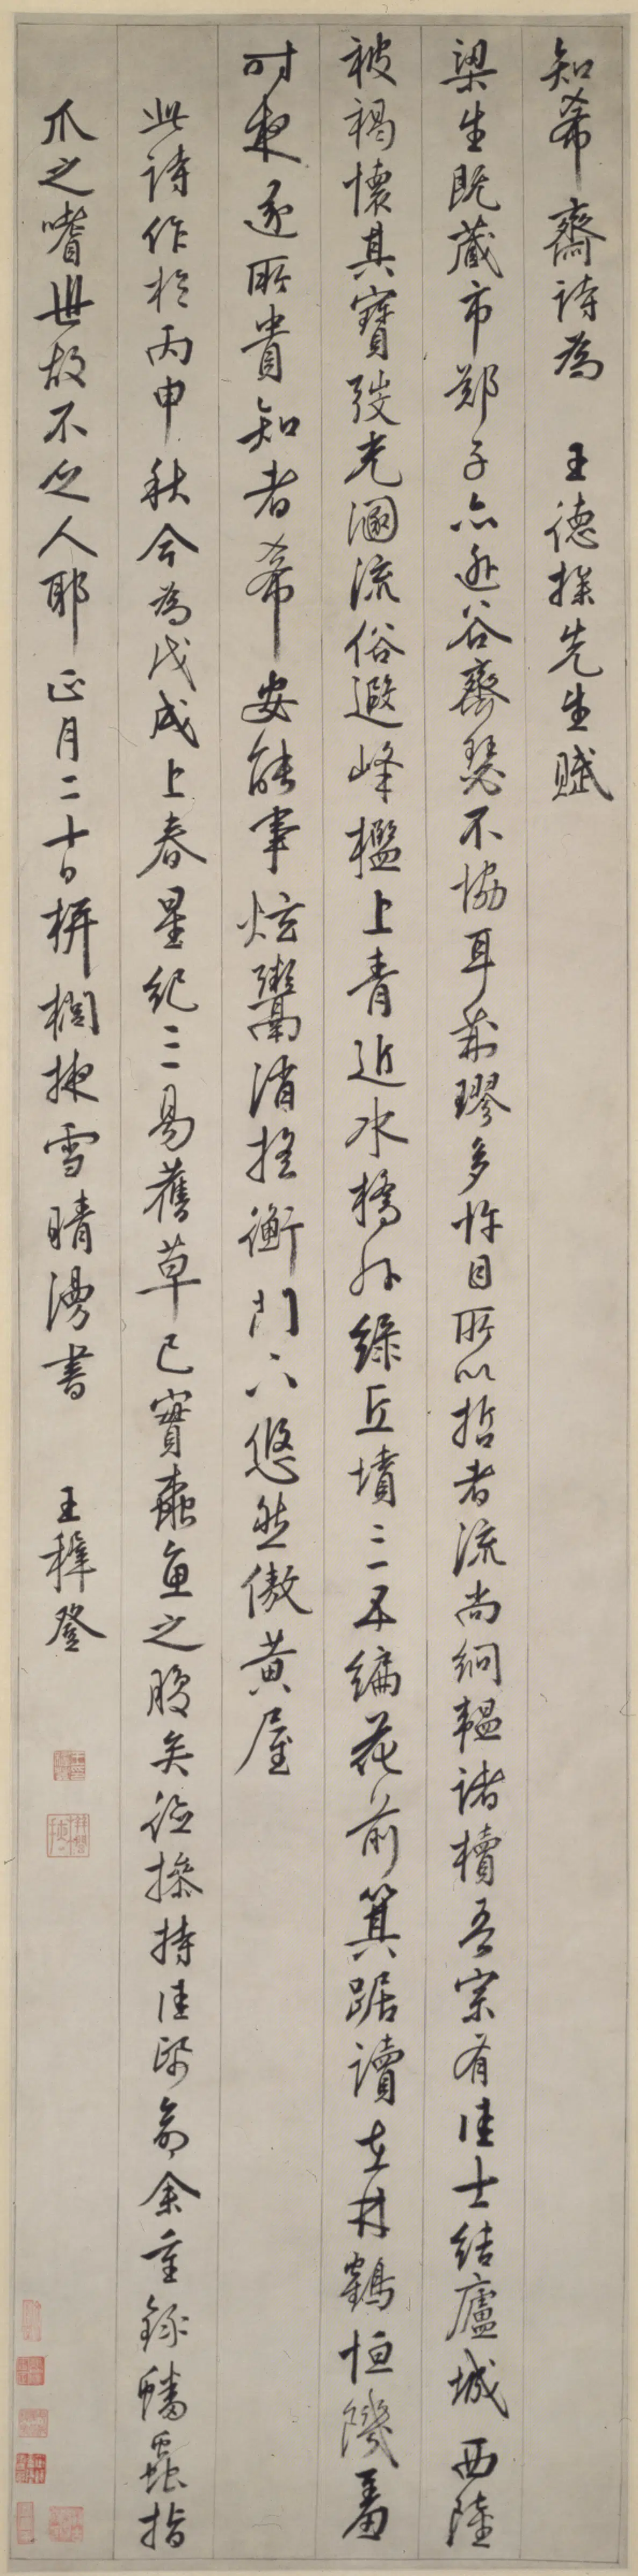 知希齋詩為 王德操先生賦
梁生既藏市鄭子亦逃谷齊瑟不協耳荊璆多忤目所以哲者流尚絅韞諸櫝吾宗有佳士結廬城西陸
被褐懷其寶弢光溷流俗遐峰檻上青近水橋外綠丘墳三五編花前箕踞讀在林鶴恒饑畜
時夜逐所貴知者希安能事炫鬻消搖衡門下悠然傲黃屋
此詩作於丙申秋今為戊戌上春星紀三易舊草已實蠹魚之腹矣德操持佳紙命余重錄蟠蟲指
爪之嗜世故不乏人耶正月二十日栟櫚掖雪晴漫書 王穉登